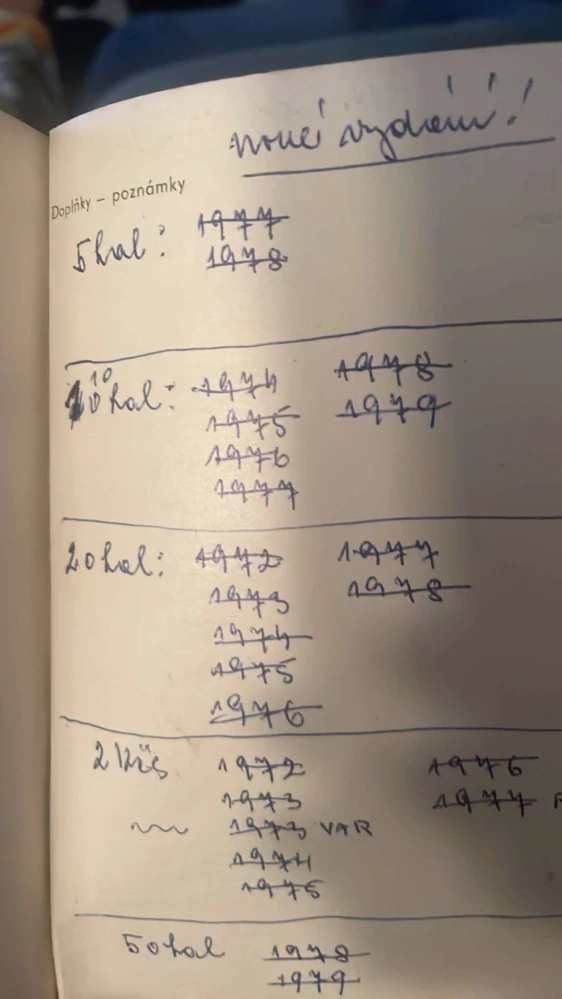 nové vydání!
Doplňky – poznámky
5 hal: 1977
1978
10 hal: 1974 1978
1975 1979
1976
1977
20 hal: 1972 1977
1973 1978
1974
1975
1976
2 Kčs 1972 1976
1973 1977
1973 VAR
1974
1975
50 hal 1978
1979